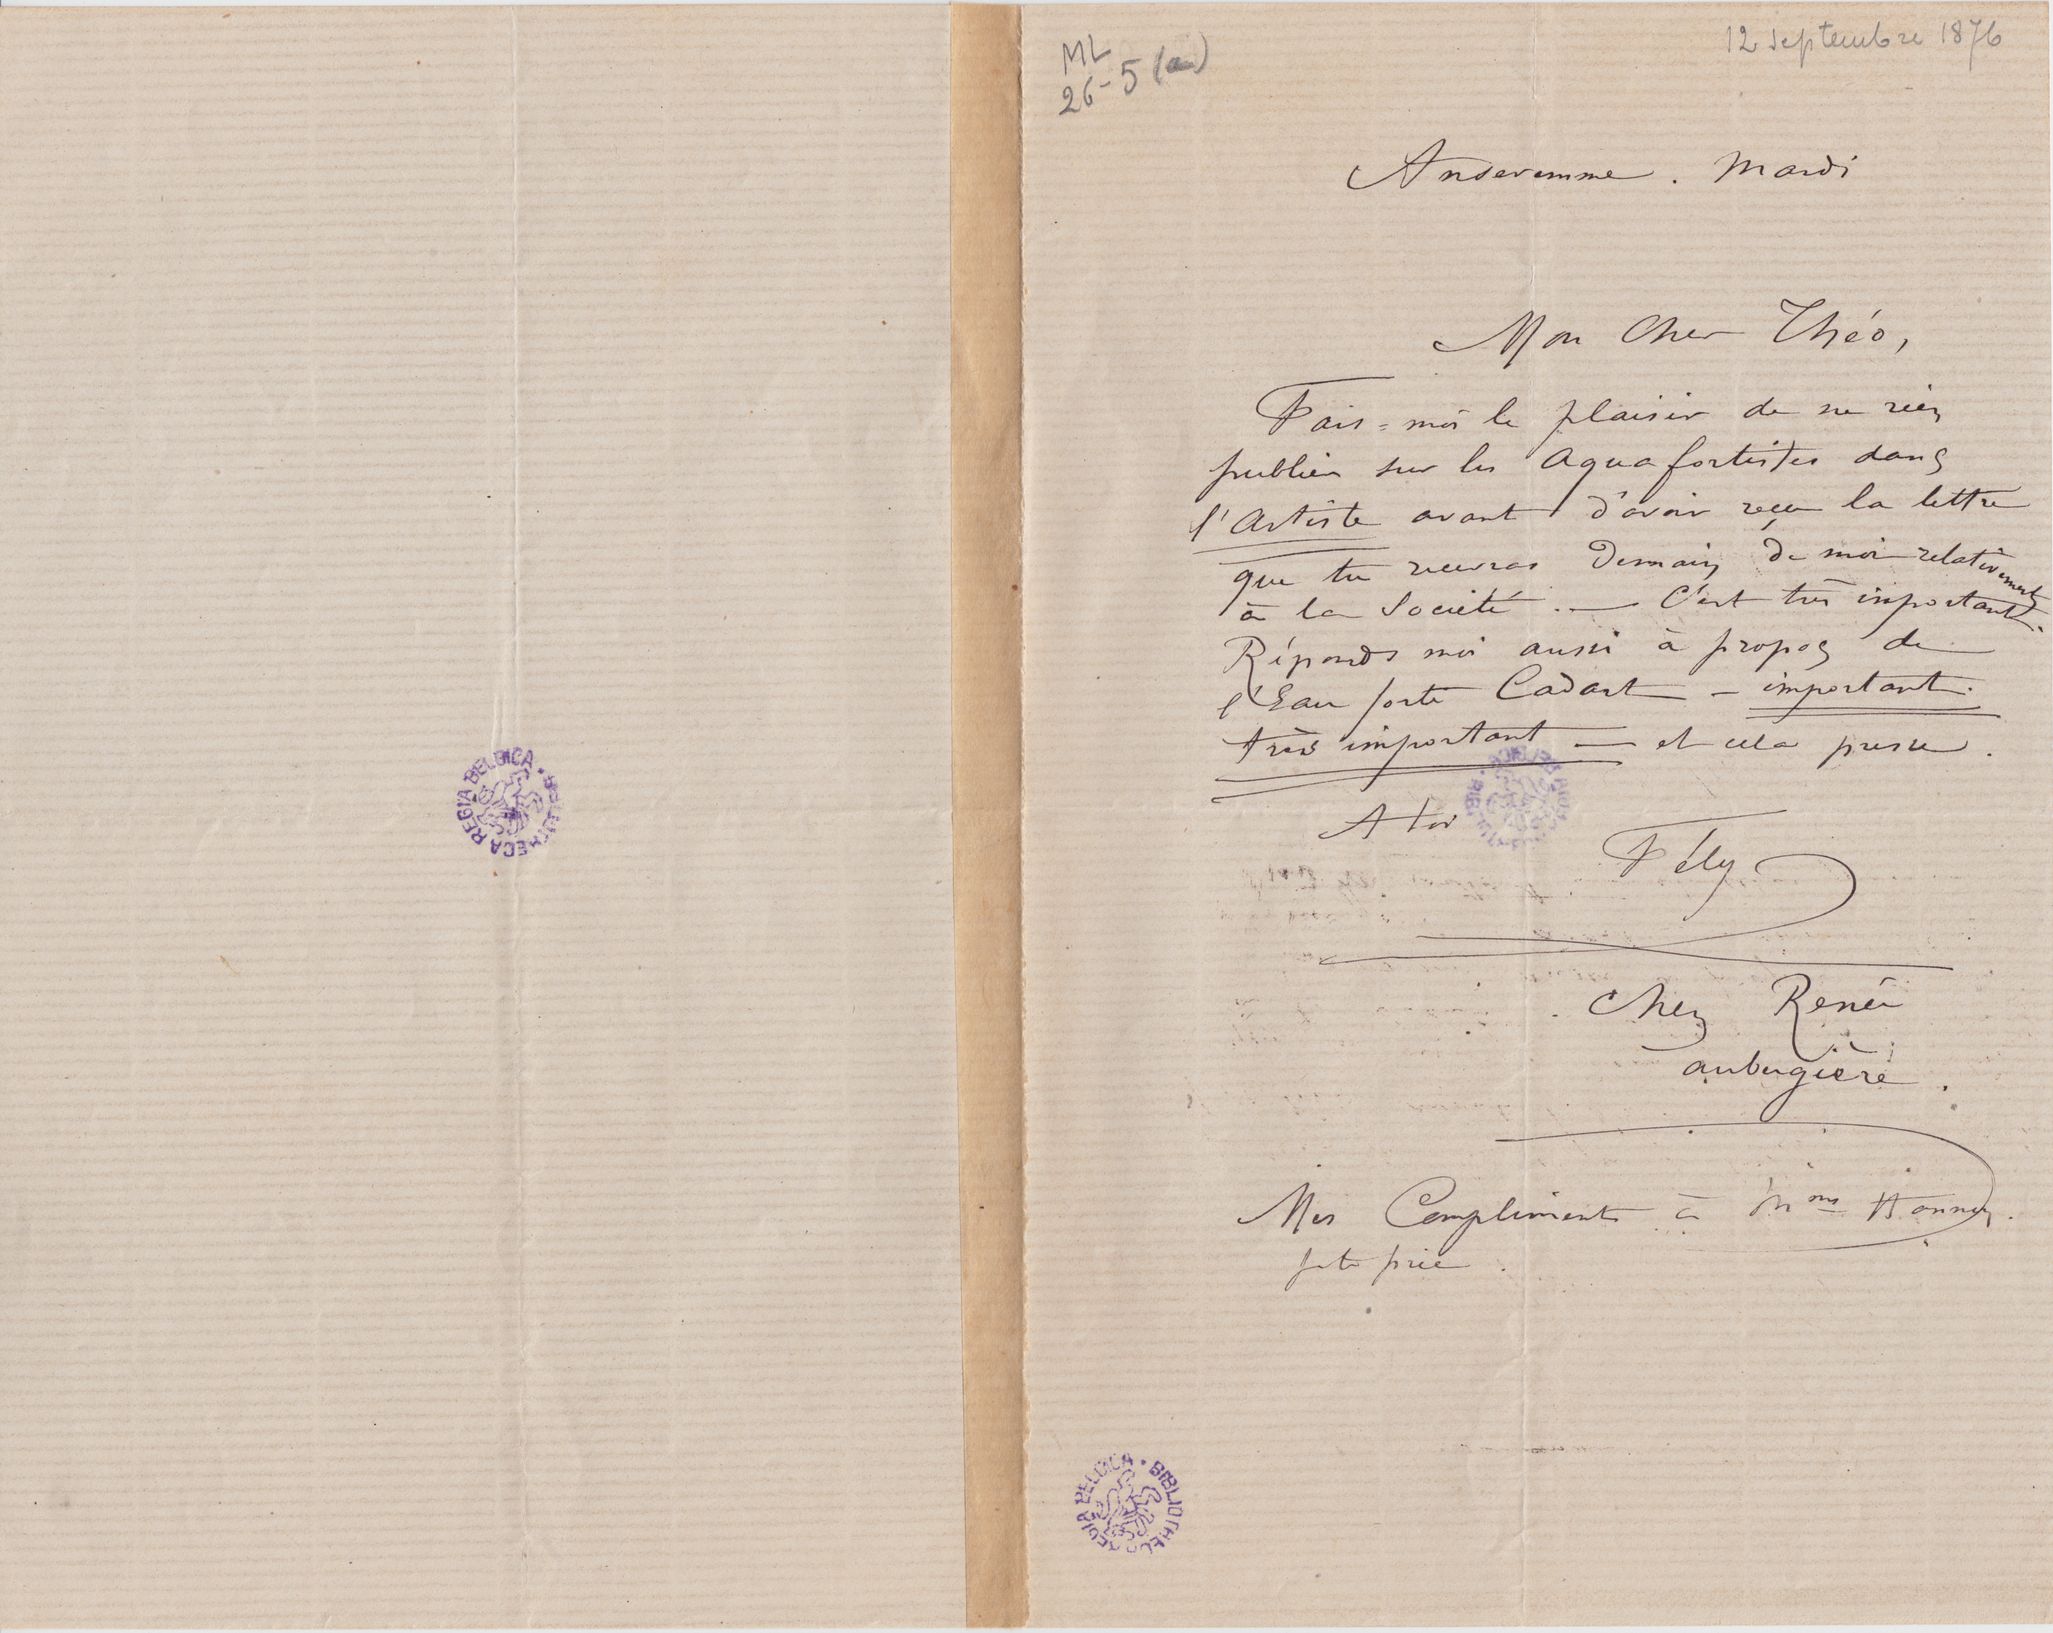 ML
26-5 (a)
12 septembre 1876
Anseremme. Mardi
Mon Cher Théo,
Fais=moi le plaisir de ne rien
publier sur les Aquafortistes dans
l'Artiste avant d'avoir reçu la lettre
que tu recevras Demain de moi relativement
à la Société. — C'est très important.
Réponds moi aussi à propos de
l'Eau forte Cadart — important.
très important — et cela presse.
A toi
Fély
Chez Renée
aubergière.
Mes Compliments à Mme Hannon.
je te prie.
BIBLIOTHECA REGIA BELGICA
BIBLIOTHECA REGIA BELGICA
BIBLIOTHECA REGIA BELGICA